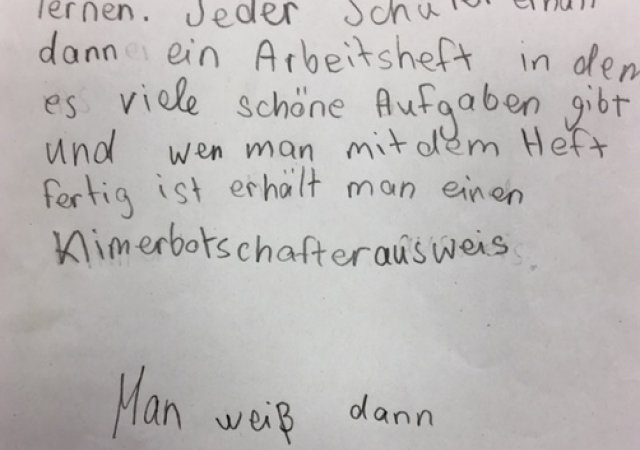 lernen. Jeder Schüler erhält
dann ein Arbeitsheft in dem
es viele schöne Aufgaben gibt
und wen man mit dem Heft
fertig ist erhält man einen
Klimerbotschafterausweis.
Man weiß dann